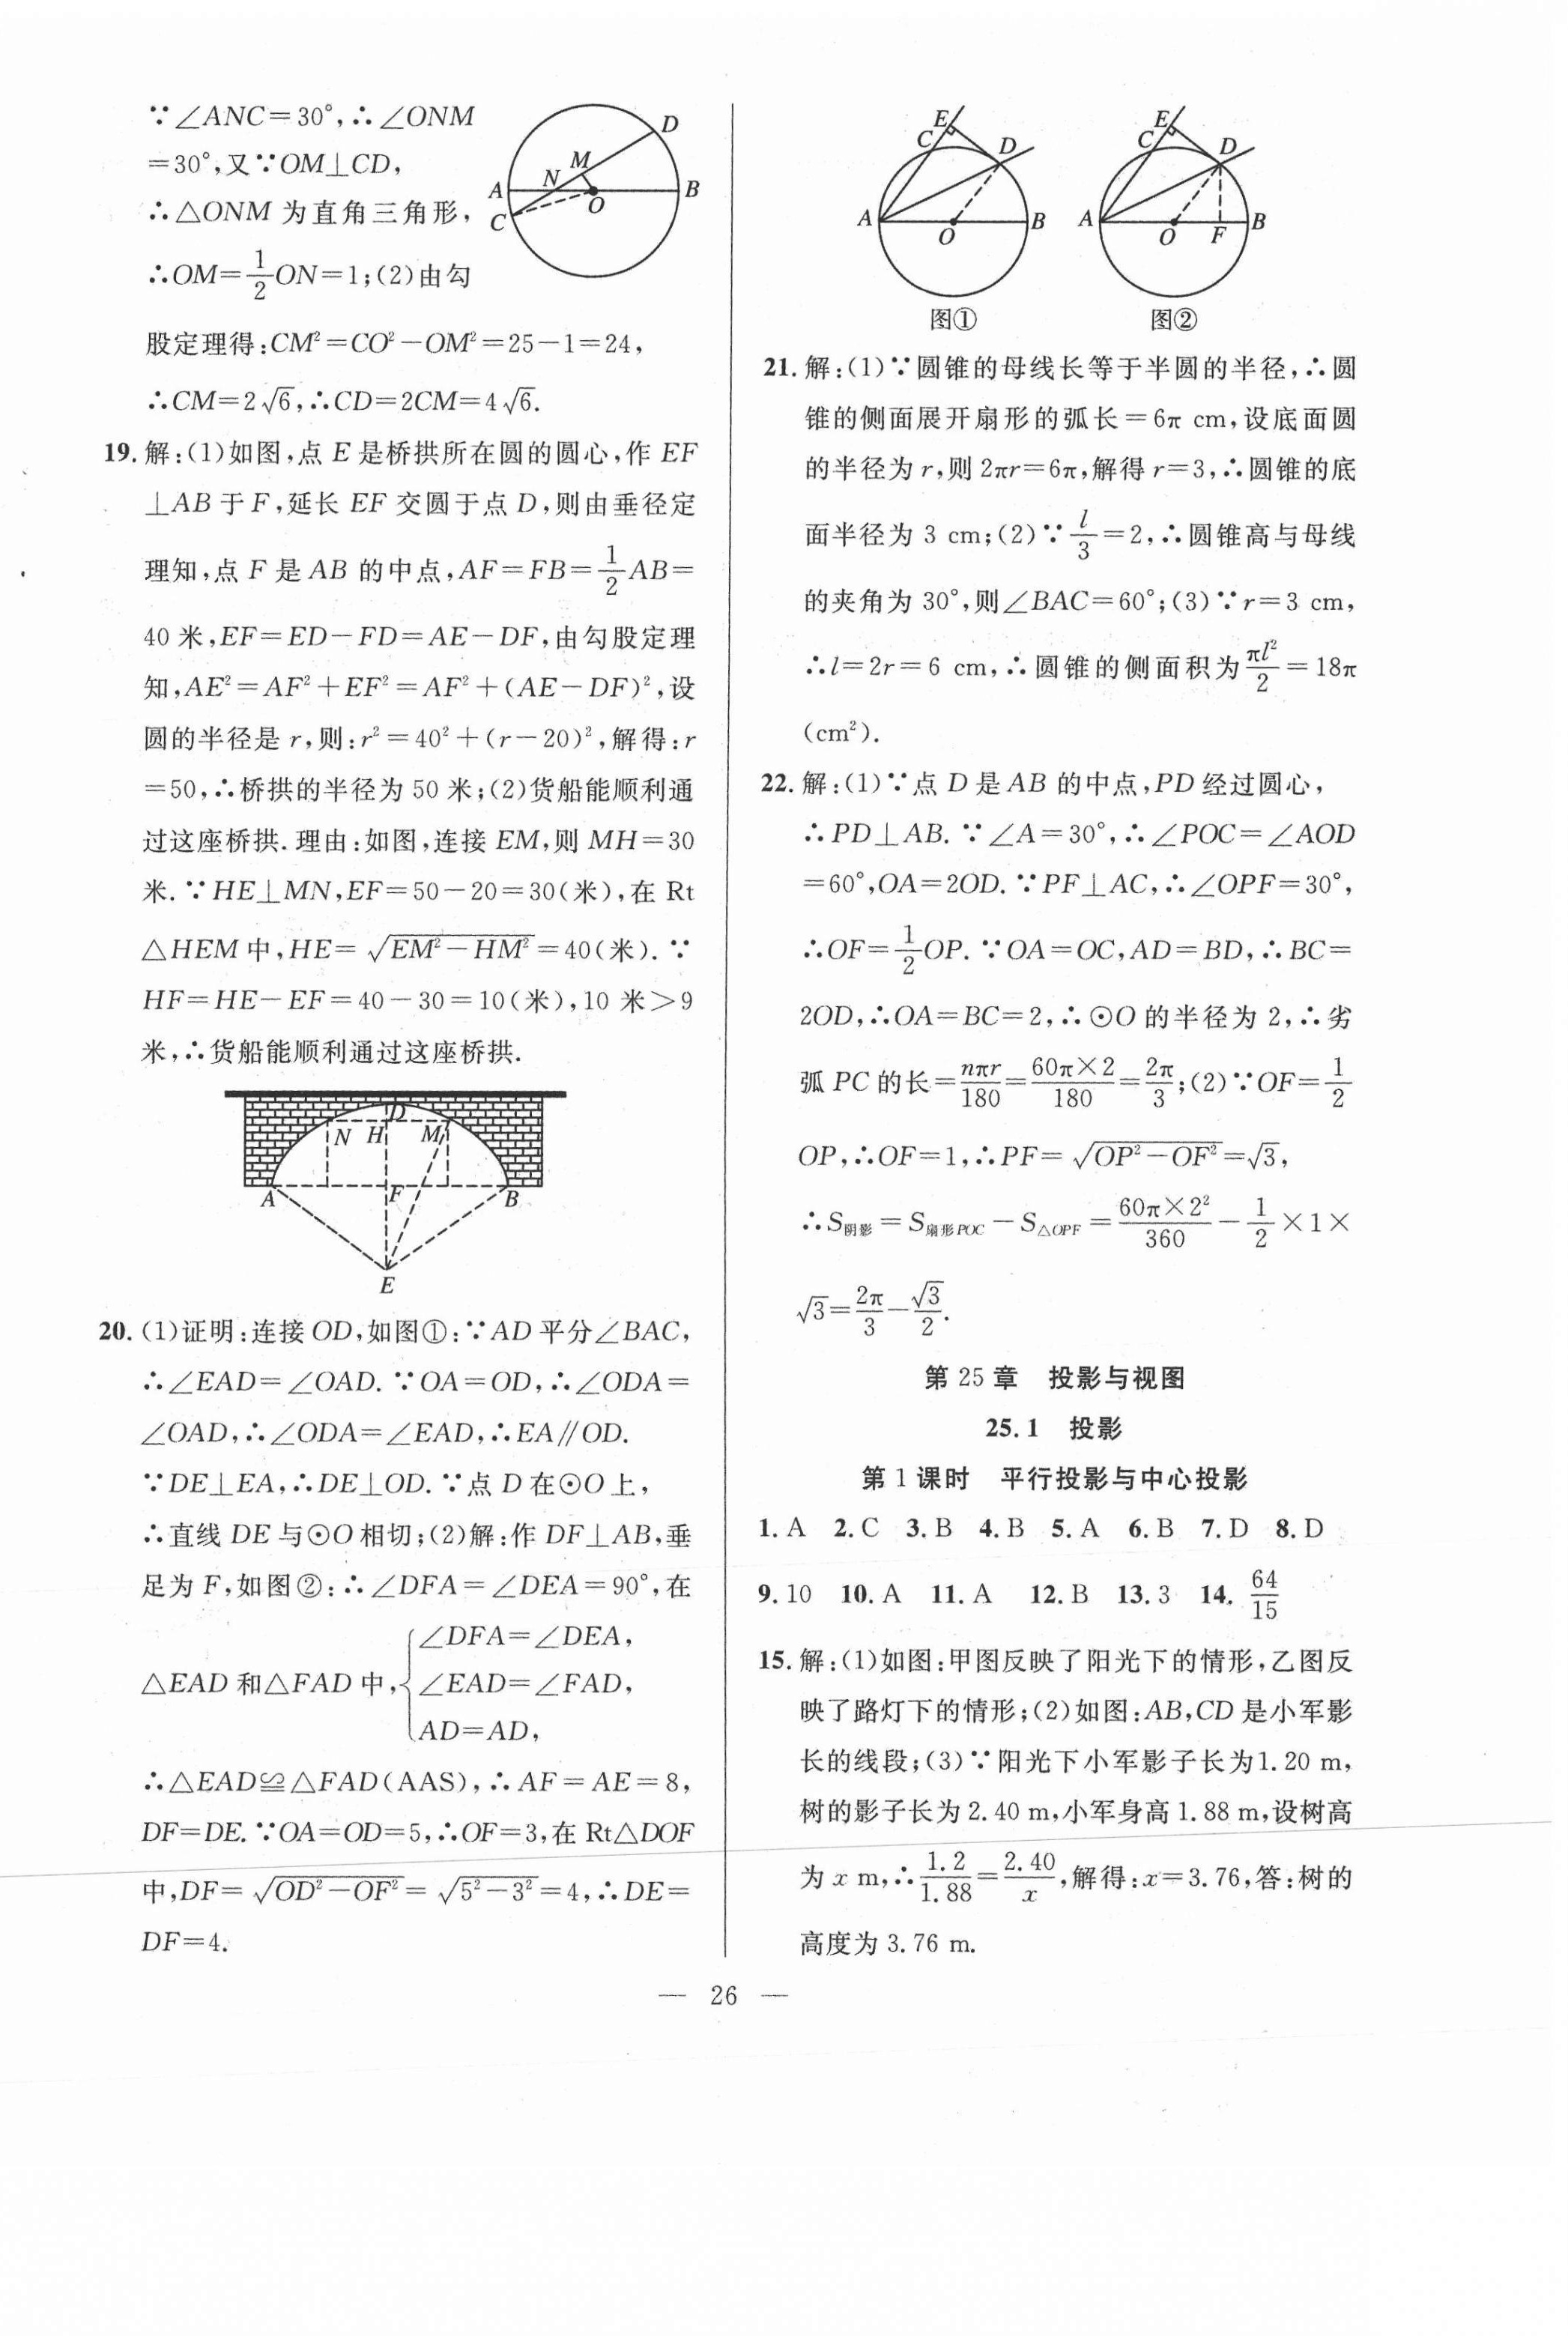 ∵∠ANC=30°,∴∠ONM
=30°,又∵OM⊥CD,
∴△ONM 为直角三角形,
∴OM=1/2ON=1;(2)由勾
股定理得:CM²=CO²-OM²=25-1=24,
∴CM=2√6,∴CD=2CM=4√6.
D
M
N
A
B
O
C
19.解:(1)如图,点 E 是桥拱所在圆的圆心,作 EF
⊥AB 于 F,延长 EF 交圆于点 D,则由垂径定
理知,点 F 是 AB 的中点,AF=FB=1/2AB=
40 米,EF=ED-FD=AE-DF,由勾股定理
知,AE²=AF²+EF²=AF²+(AE-DF)²,设
圆的半径是 r,则:r²=40²+(r-20)²,解得:r
=50,∴桥拱的半径为 50 米;(2)货船能顺利通
过这座桥拱.理由:如图,连接 EM,则 MH=30
米.∵HE⊥MN,EF=50-20=30(米),在 Rt
△HEM 中,HE=√(EM²-HM²)=40(米).∵
HF=HE-EF=40-30=10(米),10 米>9
米,∴货船能顺利通过这座桥拱.
D
N H M
A F B
E
20.(1)证明:连接 OD,如图①:∵AD 平分∠BAC,
∴∠EAD=∠OAD.∵OA=OD,∴∠ODA=
∠OAD,∴∠ODA=∠EAD,∴EA∥OD.
∵DE⊥EA,∴DE⊥OD.∵点 D 在⊙O 上,
∴直线 DE 与⊙O 相切;(2)解:作 DF⊥AB,垂
足为 F,如图②:∴∠DFA=∠DEA=90°,在
∠DFA=∠DEA,
△EAD 和△FAD 中,{∠EAD=∠FAD,
AD=AD,
∴△EAD≌△FAD(AAS),∴AF=AE=8,
DF=DE.∵OA=OD=5,∴OF=3,在 Rt△DOF
中,DF=√(OD²-OF²)=√(5²-3²)=4,∴DE=
DF=4.
E
C
D
A
O
B
图①
E
C
D
A
O F
B
图②
21.解:(1)∵圆锥的母线长等于半圆的半径,∴圆
锥的侧面展开扇形的弧长=6π cm,设底面圆
的半径为 r,则 2πr=6π,解得 r=3,∴圆锥的底
面半径为 3 cm;(2)∵l/3=2,∴圆锥高与母线
的夹角为 30°,则∠BAC=60°;(3)∵r=3 cm,
∴l=2r=6 cm,∴圆锥的侧面积为πl²/2=18π
(cm²).
22.解:(1)∵点 D 是 AB 的中点,PD 经过圆心,
∴PD⊥AB.∵∠A=30°,∴∠POC=∠AOD
=60°,OA=2OD.∵PF⊥AC,∴∠OPF=30°,
∴OF=1/2OP.∵OA=OC,AD=BD,∴BC=
2OD,∴OA=BC=2,∴⊙O 的半径为 2,∴劣
弧 PC 的长=nπr/180=60π×2/180=2π/3;(2)∵OF=1/2
OP,∴OF=1,∴PF=√(OP²-OF²)=√3,
∴S阴影=S扇形POC-S△OPF=60π×2²/360-1/2×1×
√3=2π/3-√3/2.
第 25 章 投影与视图
25.1 投影
第 1 课时 平行投影与中心投影
1.A 2.C 3.B 4.B 5.A 6.B 7.D 8.D
9.10 10.A 11.A 12.B 13.3 14.64/15
15.解:(1)如图:甲图反映了阳光下的情形,乙图反
映了路灯下的情形;(2)如图:AB,CD 是小军影
长的线段;(3)∵阳光下小军影子长为1.20 m,
树的影子长为2.40 m,小军身高1.88 m,设树高
为 x m,∴1.2/1.88=2.40/x,解得:x=3.76,答:树的
高度为 3.76 m.
— 26 —